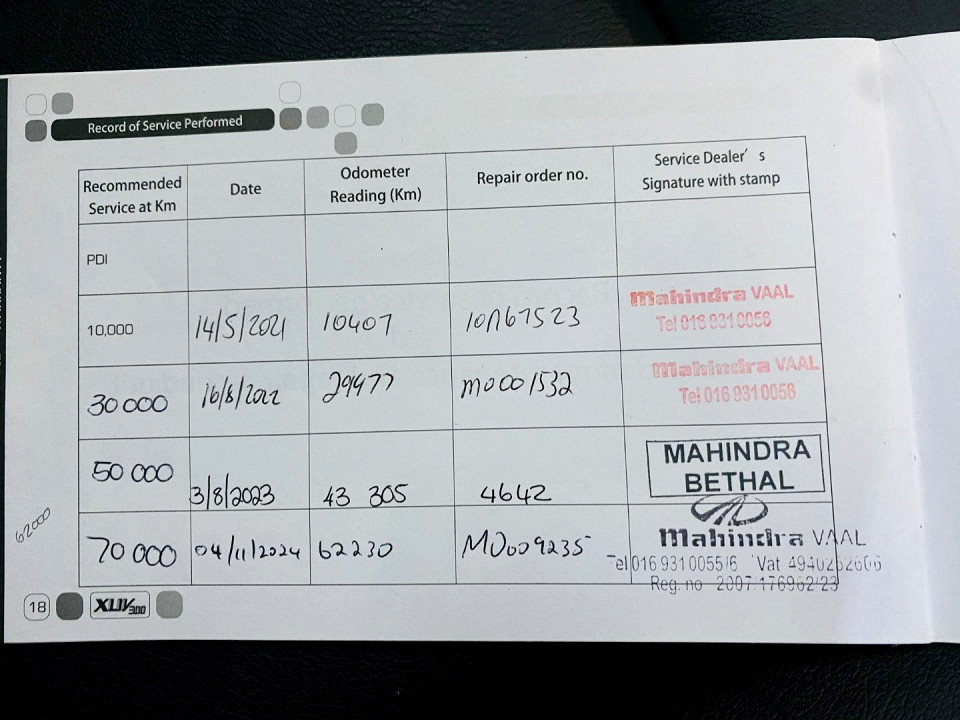 Record of Service Performed
Recommended Service at Km Date Odometer Reading (Km) Repair order no. Service Dealer's Signature with stamp
PDI
10,000 14/5/2021 10407 10A67523 Mahindra VAAL
Tel 016 931 0056
30 000 16/8/2022 29977 M0001532 Mahindra VAAL
Tel 016 931 0056
50 000 3/8/2023 43 305 4642 MAHINDRA
BETHAL
62000
70 000 04/11/2024 62230 M0009235 Mahindra VAAL
Tel 016 931 0055/6 Vat 4940262606
Reg. no 2007/176962/23
18 XUV300